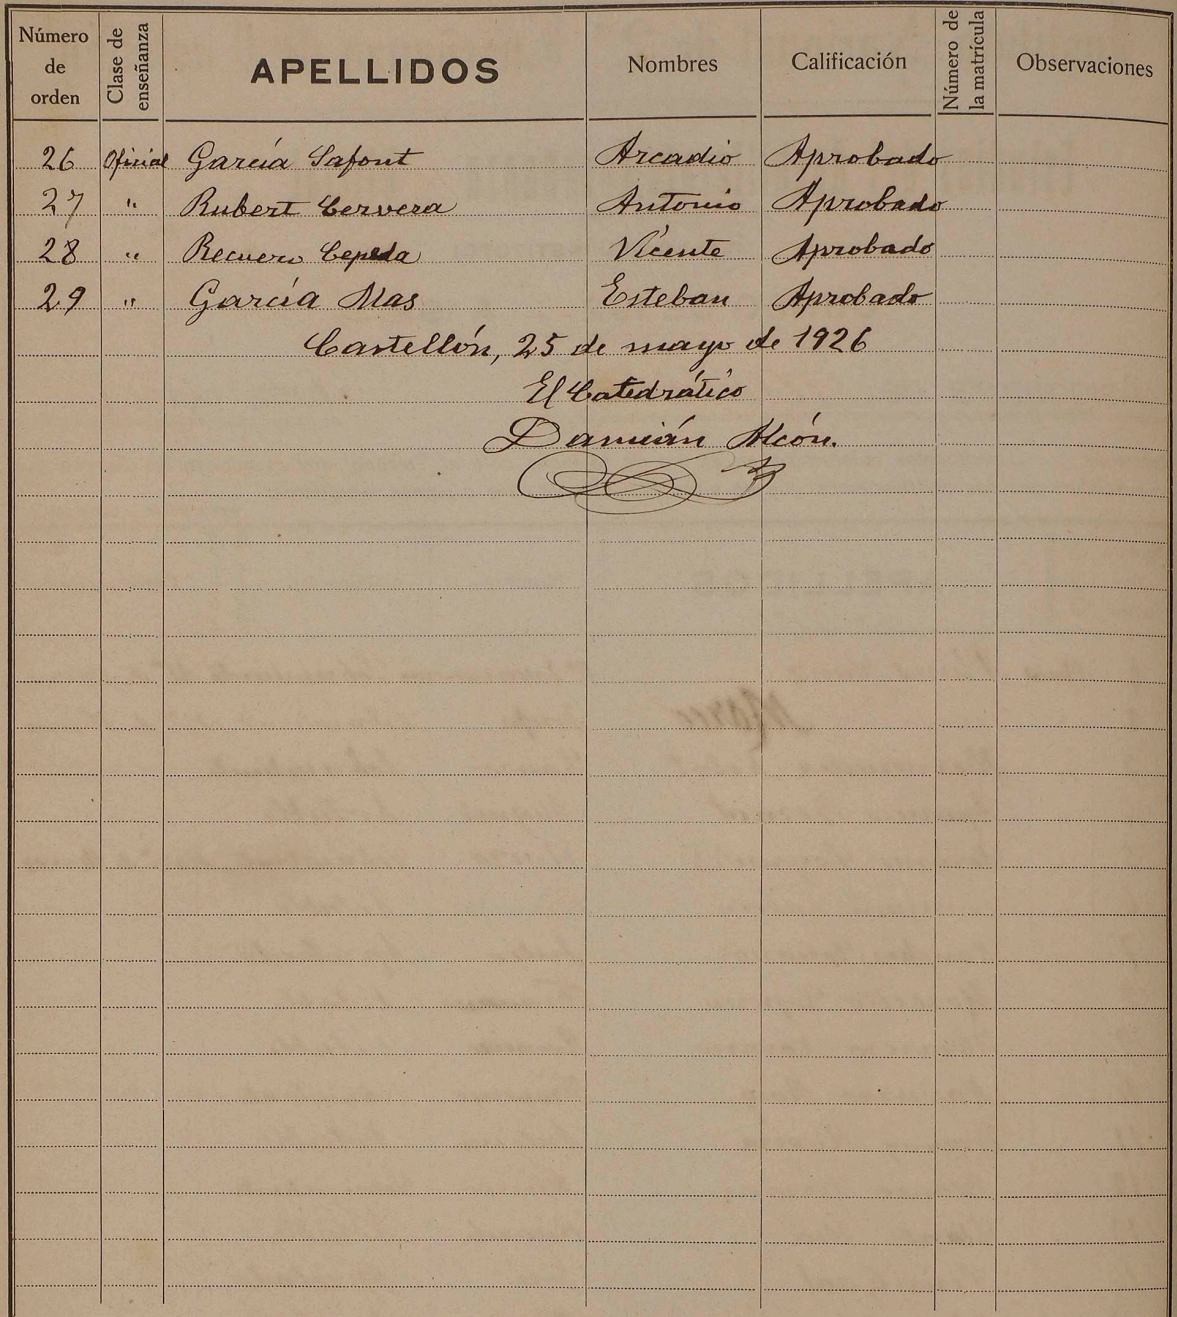 Número de orden Clase de enseñanza APELLIDOS Nombres Calificación Número de la matrícula Observaciones
26 Oficial García Safont Arcadio Aprobado
27 " Rubert Cervera Antonio Aprobado
28 " Recuero Cepeda Vicente Aprobado
29 " García Mas Esteban Aprobado
Castellón, 25 de mayo de 1926
El Catedrático
Damián Alcón.